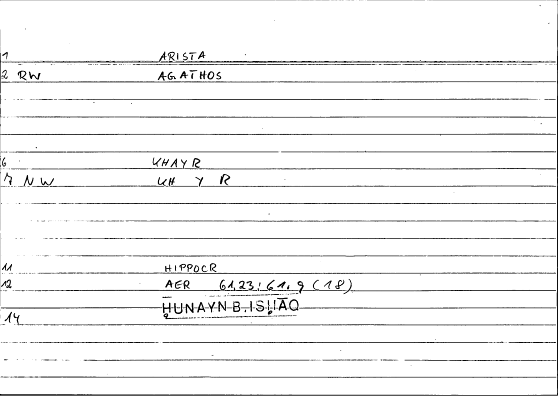 1 ARISTA
2 RW AGATHOS
6 KHAYR
7 NW KH Y R
11 HIPPOCR
12 AER 61,23; 61.9 (18)
ḤUNAYN B. ISḤĀQ
14